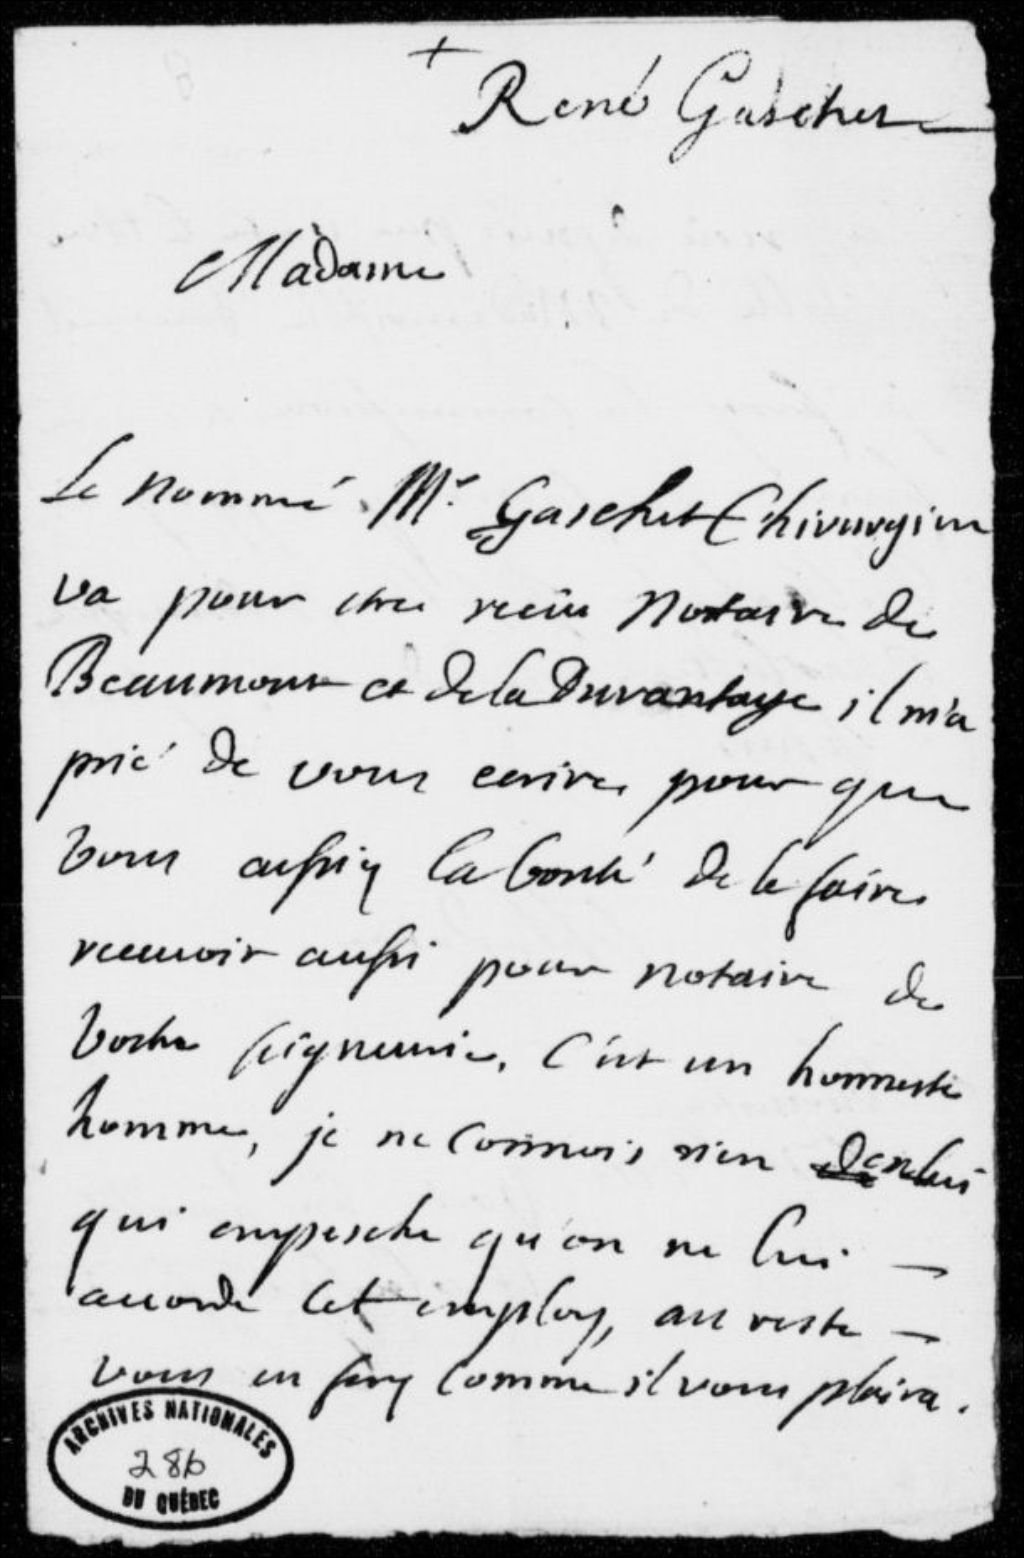 +
René Gaschet
Madame
Le nommé Mr. Gaschet Chirurgien
va pour estre receu Notaire de
Beaumont et de la Durantaye il m'a
prié de vous ecrire pour que
vous aussiez la bonté de le faire
recevoir aussi pour notaire de
vostre seigneurie. C'est un honneste
homme, je ne connois rien en lui
qui empesche qu'on ne lui —
accorde cet employ, au reste —
vous en ferez comme il vous plaira.
ARCHIVES NATIONALES
286
DU QUÉBEC